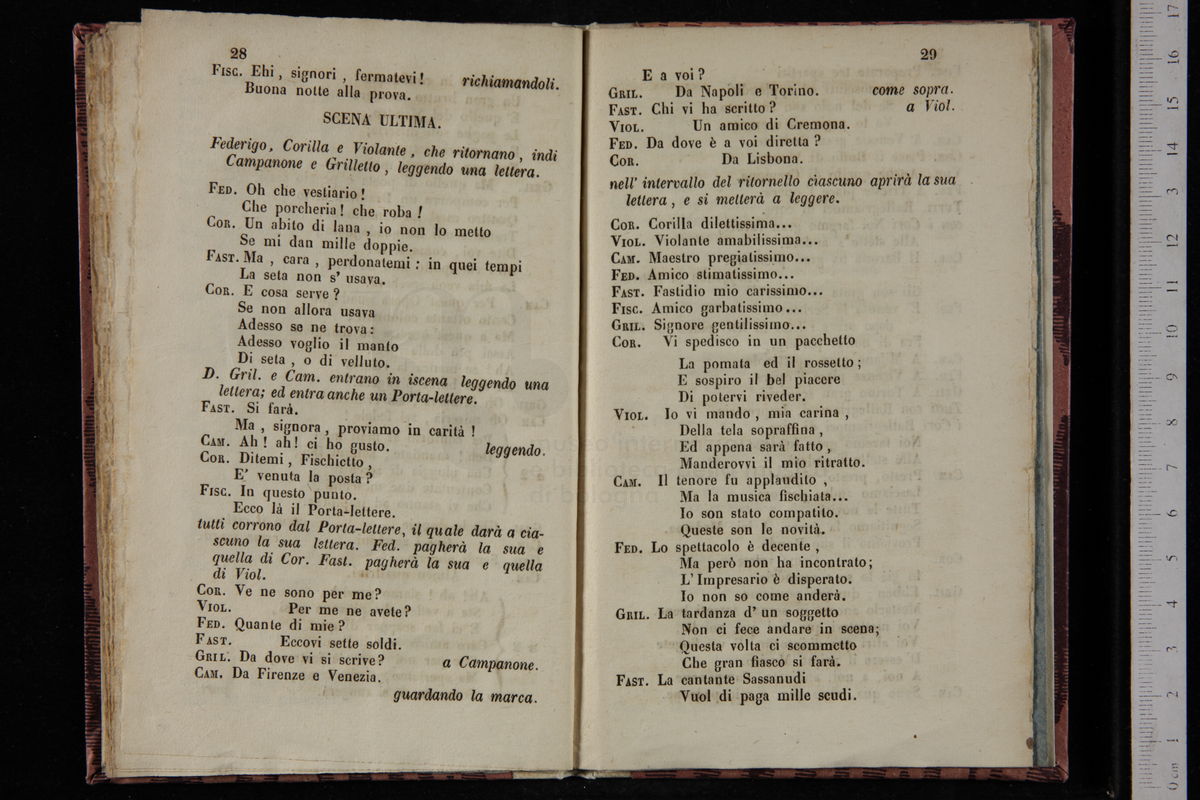 28
Fisc. Ehi, signori, fermatevi! richiamandoli.
Buona notte alla prova.
SCENA ULTIMA.
Federigo, Corilla e Violante, che ritornano, indi
Campanone e Grilletto, leggendo una lettera.
Fed. Oh che vestiario!
Che porcheria! che roba!
Cor. Un abito di lana, io non lo metto
Se mi dan mille doppie.
Fast. Ma, cara, perdonatemi: in quei tempi
La seta non s' usava.
Cor. E cosa serve?
Se non allora usava
Adesso se ne trova:
Adesso voglio il manto
Di seta, o di velluto.
D. Gril. e Cam. entrano in iscena leggendo una
lettera; ed entra anche un Porta-lettere.
Fast. Si farà.
Ma, signora, proviamo in carità!
Cam. Ah! ah! ci ho gusto. leggendo.
Cor. Ditemi, Fischietto,
E' venuta la posta?
Fisc. In questo punto.
Ecco là il Porta-lettere.
tutti corrono dal Porta-lettere, il quale darà a cia-
scuno la sua lettera. Fed. pagherà la sua e
quella di Cor. Fast. pagherà la sua e quella
di Viol.
Cor. Ve ne sono per me?
Viol. Per me ne avete?
Fed. Quante di mie?
Fast. Eccovi sette soldi.
Gril. Da dove vi si scrive? a Campanone.
Cam. Da Firenze e Venezia.
guardando la marca.
29
E a voi?
Gril. Da Napoli e Torino. come sopra.
Fast. Chi vi ha scritto? a Viol.
Viol. Un amico di Cremona.
Fed. Da dove è a voi diretta?
Cor. Da Lisbona.
nell' intervallo del ritornello ciascuno aprirà la sua
lettera, e si metterà a leggere.
Cor. Corilla dilettissima...
Viol. Violante amabilissima...
Cam. Maestro pregiatissimo...
Fed. Amico stimatissimo...
Fast. Fastidio mio carissimo...
Fisc. Amico garbatissimo...
Gril. Signore gentilissimo...
Cor. Vi spedisco in un pacchetto
La pomata ed il rossetto;
E sospiro il bel piacere
Di potervi riveder.
Viol. Io vi mando, mia carina,
Della tela sopraffina,
Ed appena sarà fatto,
Manderovvi il mio ritratto.
Cam. Il tenore fu applaudito,
Ma la musica fischiata...
Io son stato compatito.
Queste son le novità.
Fed. Lo spettacolo è decente,
Ma però non ha incontrato;
L' Impresario è disperato.
Io non so come anderà.
Gril. La tardanza d' un soggetto
Non ci fece andare in scena;
Questa volta ci scommetto
Che gran fiasco si farà.
Fast. La cantante Sassanudi
Vuol di paga mille scudi.
0 cm 1 2 3 4 5 6 7 8 9 10 11 12 13 14 15 16 17